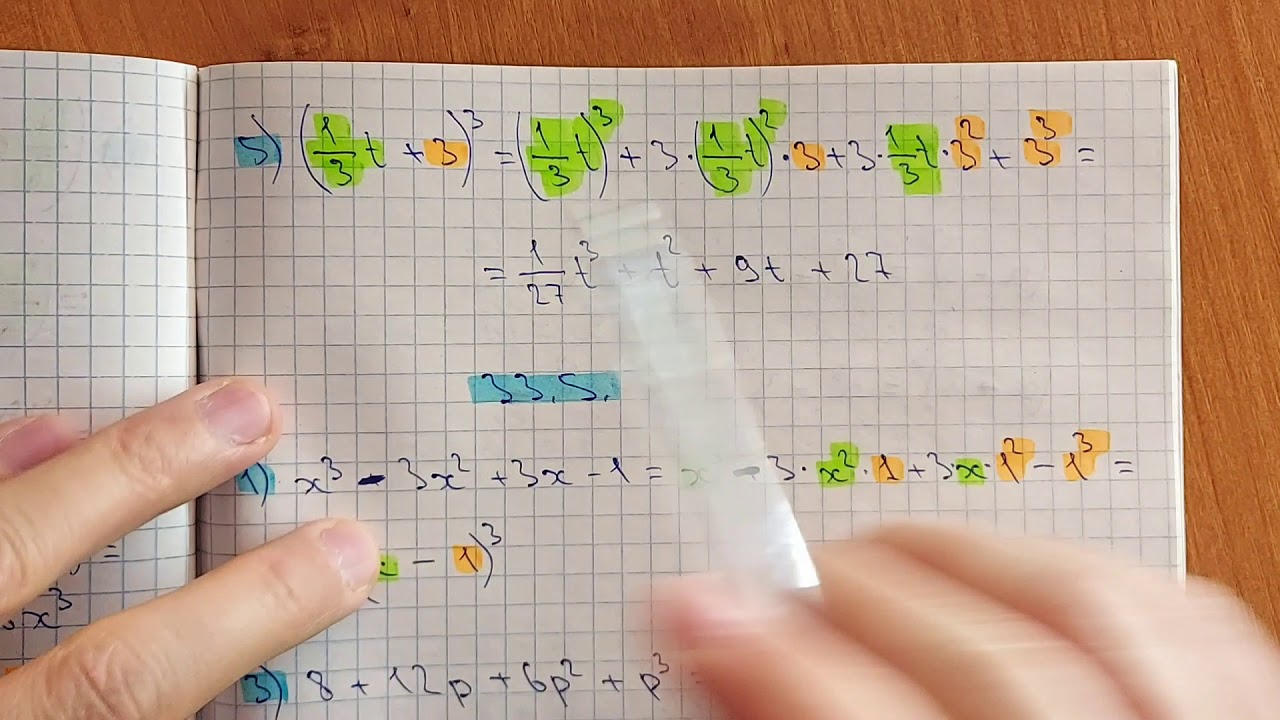 5) (1/3 t + 3)³ = (1/3 t)³ + 3·(1/3 t)²·3 + 3·1/3 t·3² + 3³ =
= 1/27 t³ + t² + 9t + 27
33.5.
1) x³ - 3x² + 3x - 1 = x - 3·x²·1 + 3·x·1² - 1³ =
- 1)³
x³
=
3) 8 + 12p + 6p² + p³